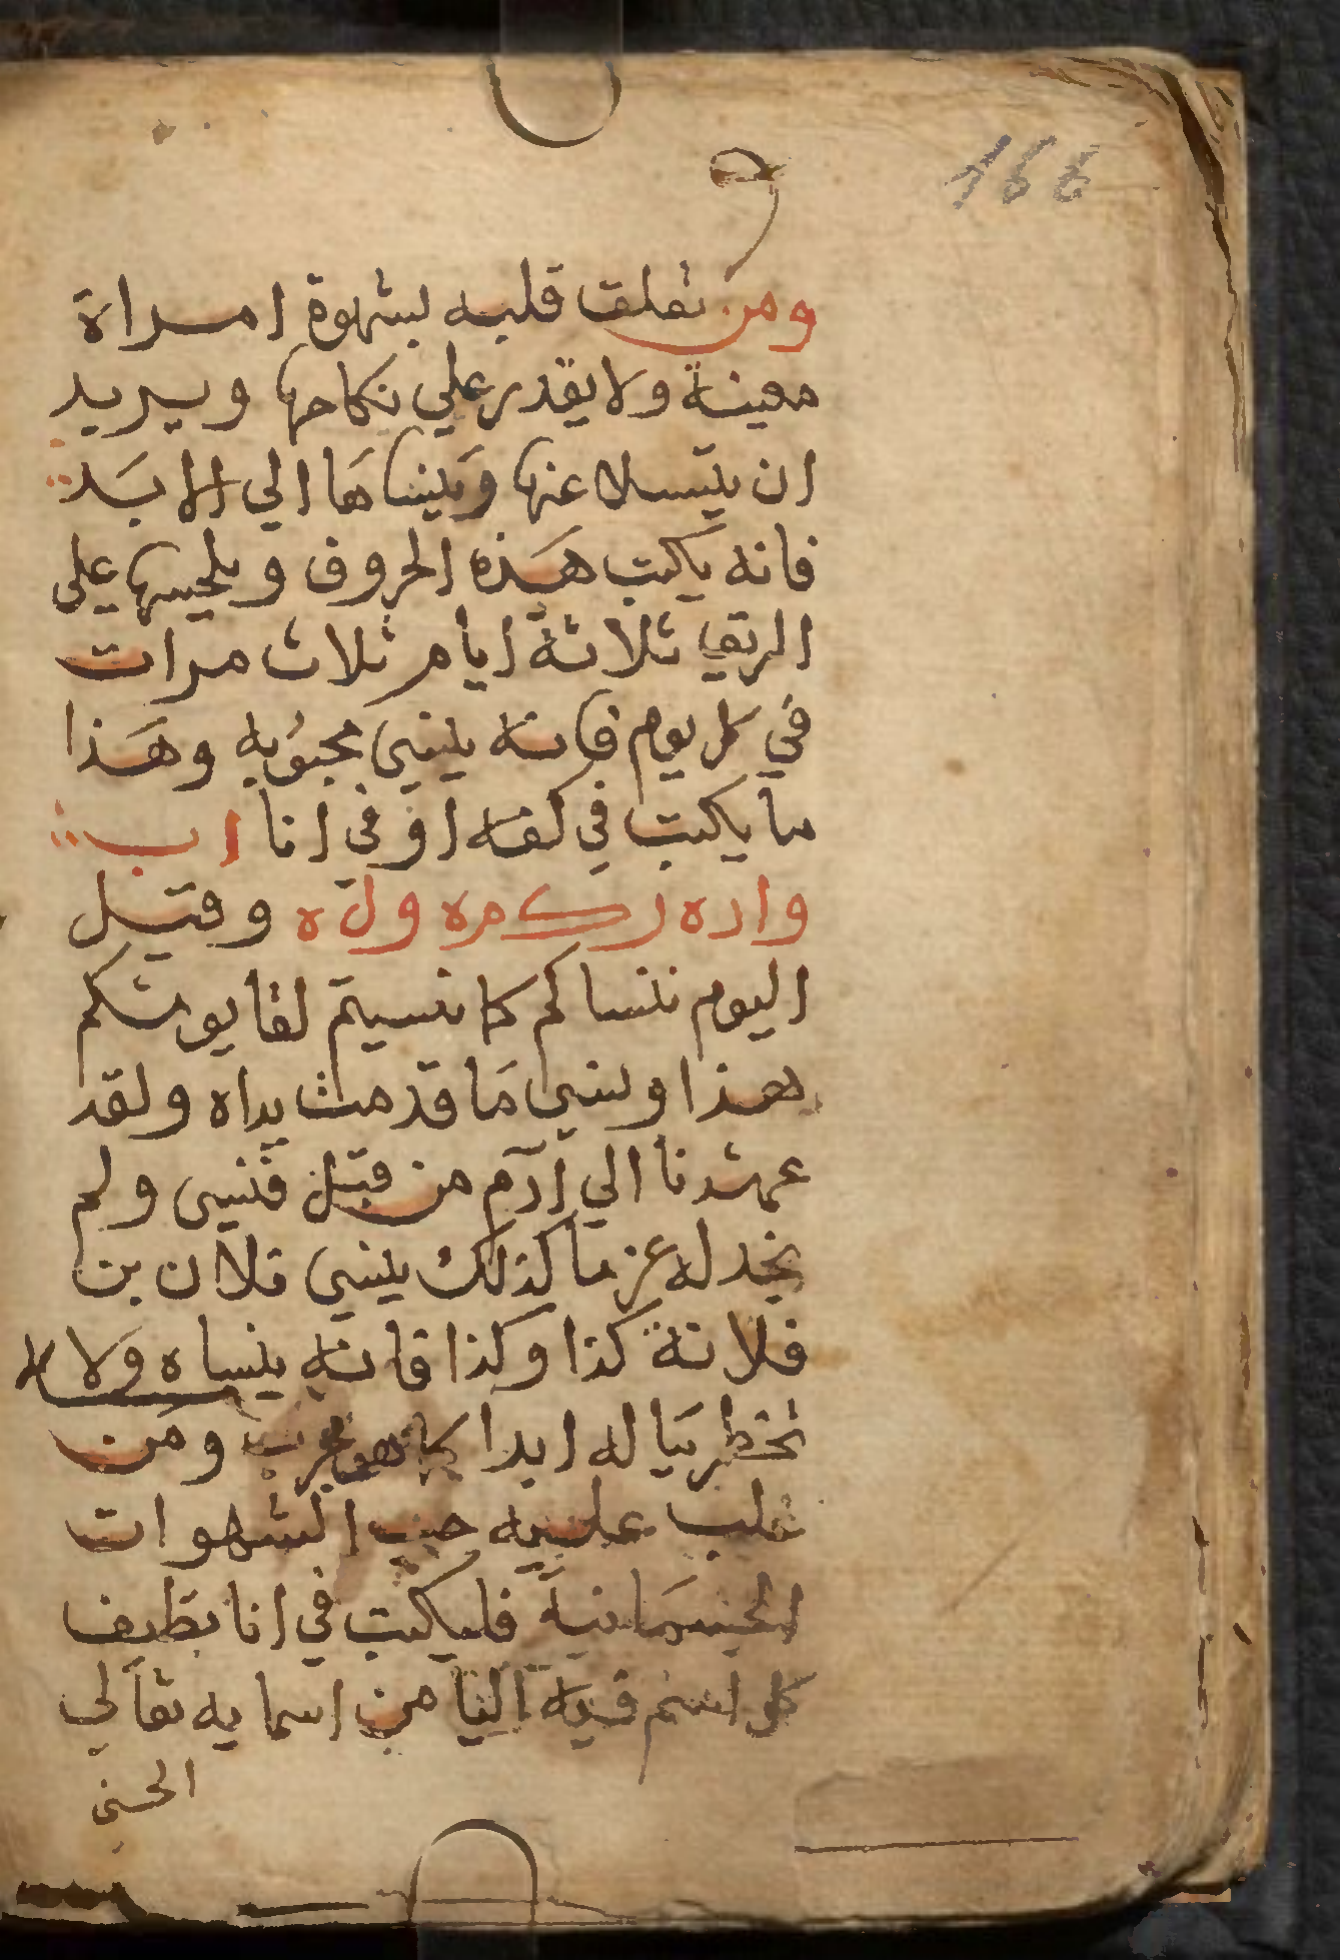 166
ومن تعلق قلبه بشهوة امراة
معينة ولا يقدر علي نكاحها ويريد
ان يتسلا عنها وَينساهَا الي الابَد
فانه يكتب هَذه الحروف ويلحسها على
الريق ثلاثة ايام ثلاث مرات
في كل يوم فانه ينسي محبوُبه وهَذا
ما يكتب في كفه او في انا ا ب
واده رك مره وله وقيل
اليوم ننساكم كما نسيتم لقا يومكم
هذا ونسي مَا قدمت يداه ولقد
عهدنا الي ادم من قبل فنسى ولم
نجد له عزما كذلك ينسي فلان بن
فلانة كذا وكذا فانه ينساه وَلا
تخطر بباله ابدا كما هو مجرب ومن
غلب عليه حب الشهوات
الجسمَانية فليكتب في انا نظيف
كل اسم فيه اليا من اسمايه تعالي
الحسنى